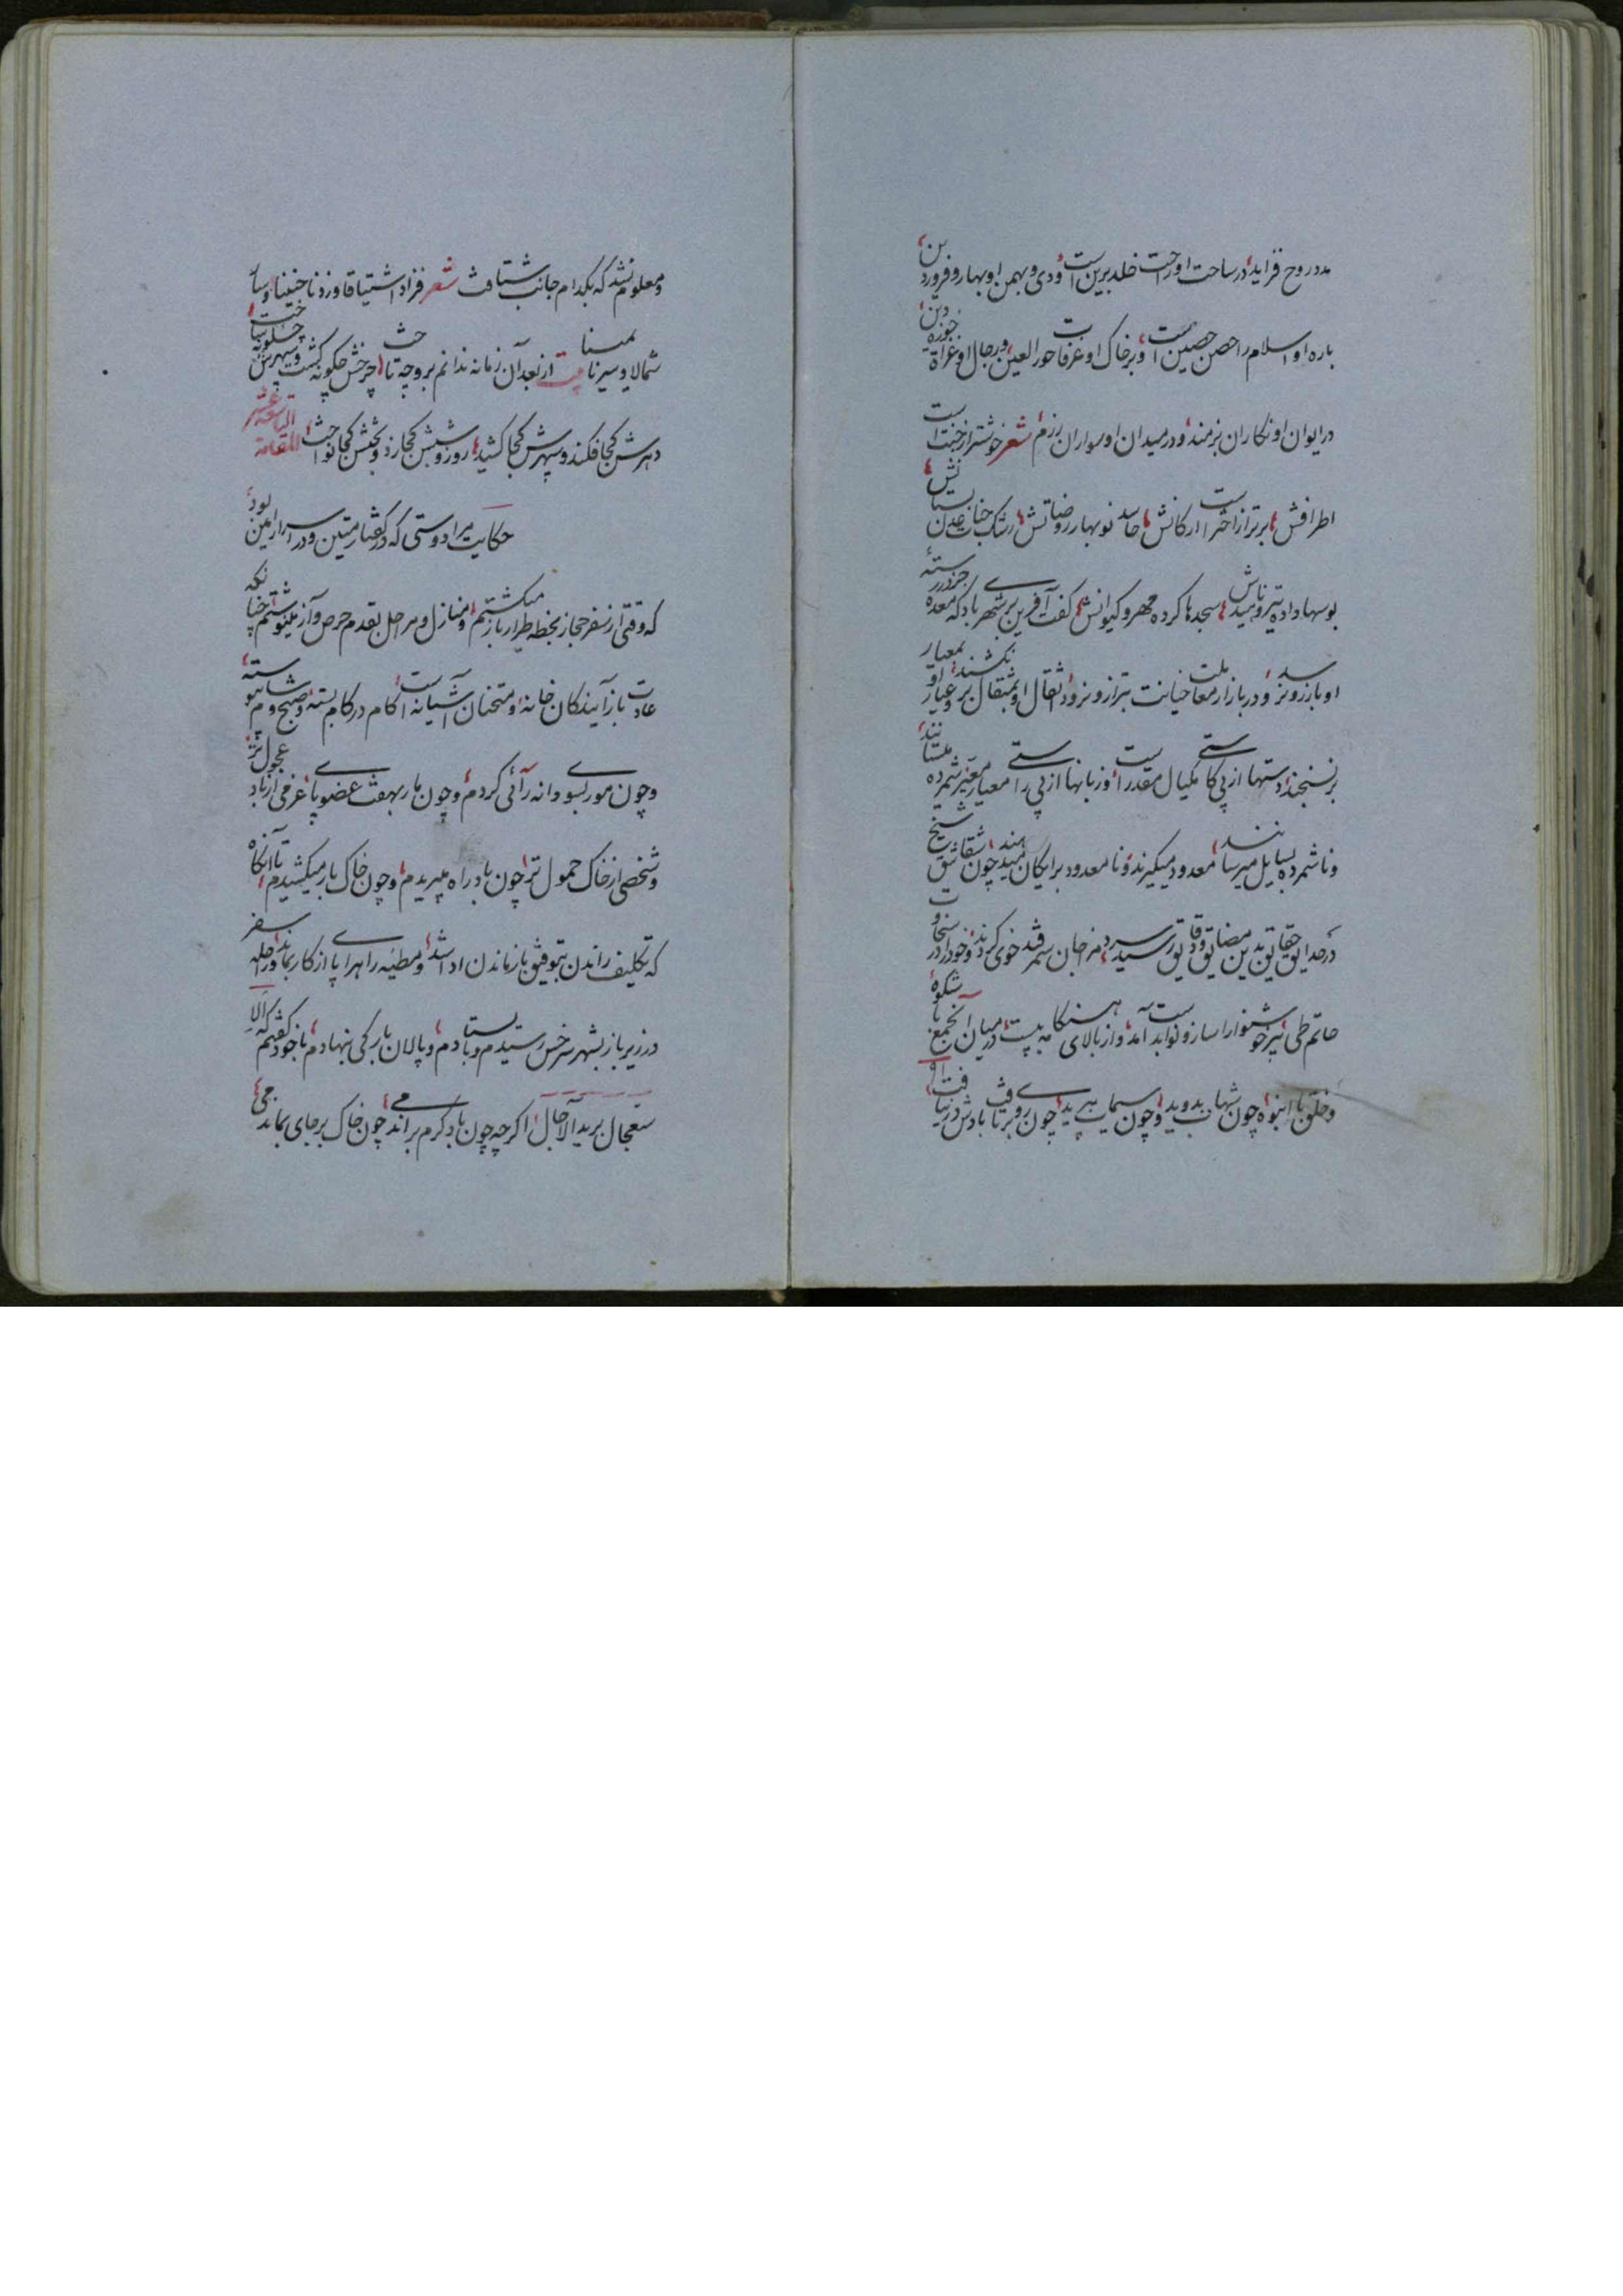 مدد روح فزاید، در ساحت او راحت خلد برین است، و دی و بهمن او بهار و فروردین،
باره او اسلام را حصن حصین است، و بر خاک او عرفات حور العین، و رجال او غزاة حوزه دین،
در ایوان او نگاران بزمند، و در میدان او سواران رزم، شعر خوشتر از جنت است
اطرافش، برتر از اختر است ارکانش، حاسد نوبهار روضاتش، رشک جنات عدن بستانش،
بوسها داده تیر و ناهیدش، سجدها کرده مهر و کیوانش، گفت آفرین بر شهری باد که معده جز در رسته
او بارزو نرسد، و در بازار معاملت خیانت بترازو نرود، ثقال او بمثقال بر نکشند، و عیار او بمعیار
بر نسنجند، دستها از پی کاستی مکیال مقدر است، و زبانها از پی راستی معیار معیر، شمرده ملستانند،
و ناشمرده بسایل میرسانند، معدود میگیرند و نامعدود برایکان میدهند، چون شقاشق شیخ
در حدایق حقایق بدین مضایق و دقایق رسید، مزاجان سمرقند خوی سردی کردند، و خود را در سخاوت
حاتم طی نیز خواستند، سنوار را ساز و نوا بدست آمد، و از بالای هنگامه به پست، در میان آنجمع با شکوه،
و خلق با انبوه، چون شهاب بدوید، و چون سیماب بپرید، چون روی برتافت بادش در نیافت، او
و معلوم نشد که بکدام جانب شتافت شعر فزاد اشتیاقا و زدنا حنینا، و سار
شمالا و سیرنا یمینا بیت از بعد آن زمانه ندانم بر و چه تاخت، چرخش چگونه گشت و سپهرش چگونه باخت،
دهرش کجا فکند و سپهرش کجا کشید، روز و شبش کجا زد و بختش کجا نواخت، المقامة التاسعة عشر
حکایت مرا دوستی که در گفتار متین و در اسرار امین بود،
که وقتی از سفر حجاز بخطه طراز باز میگشتم، و منازل و مراحل بقدم حرص و آز مینوشتم، چنانکه
عادت باز آیندگان خانه و ممتحنان آشیانه است، کام در کام بسته، و صبح و شام پیوسته،
و چون مور بسوی دانه رائی کردم، و چون مار بهفت عضو پائی، عزمی از باد عجول تر،
و شخصی از خاک حمول تر، چون باد راه میبریدم، و چون خاک بار میکشیدم، تا آنگاه
که تکلیف راندن بتوفیق باز ماندن ادا شد، و مطیه راهرا پای از کار بماند، و راحله سفر
در زیر بار، بشهر سرخس رسیدم و بایستادم، و پالان بارگی بنهادم، با خود گفتم که الا
ستعجال برید الآجال، اگرچه چون باد گرم براندمی، چون خاک بر جای بماندمی،